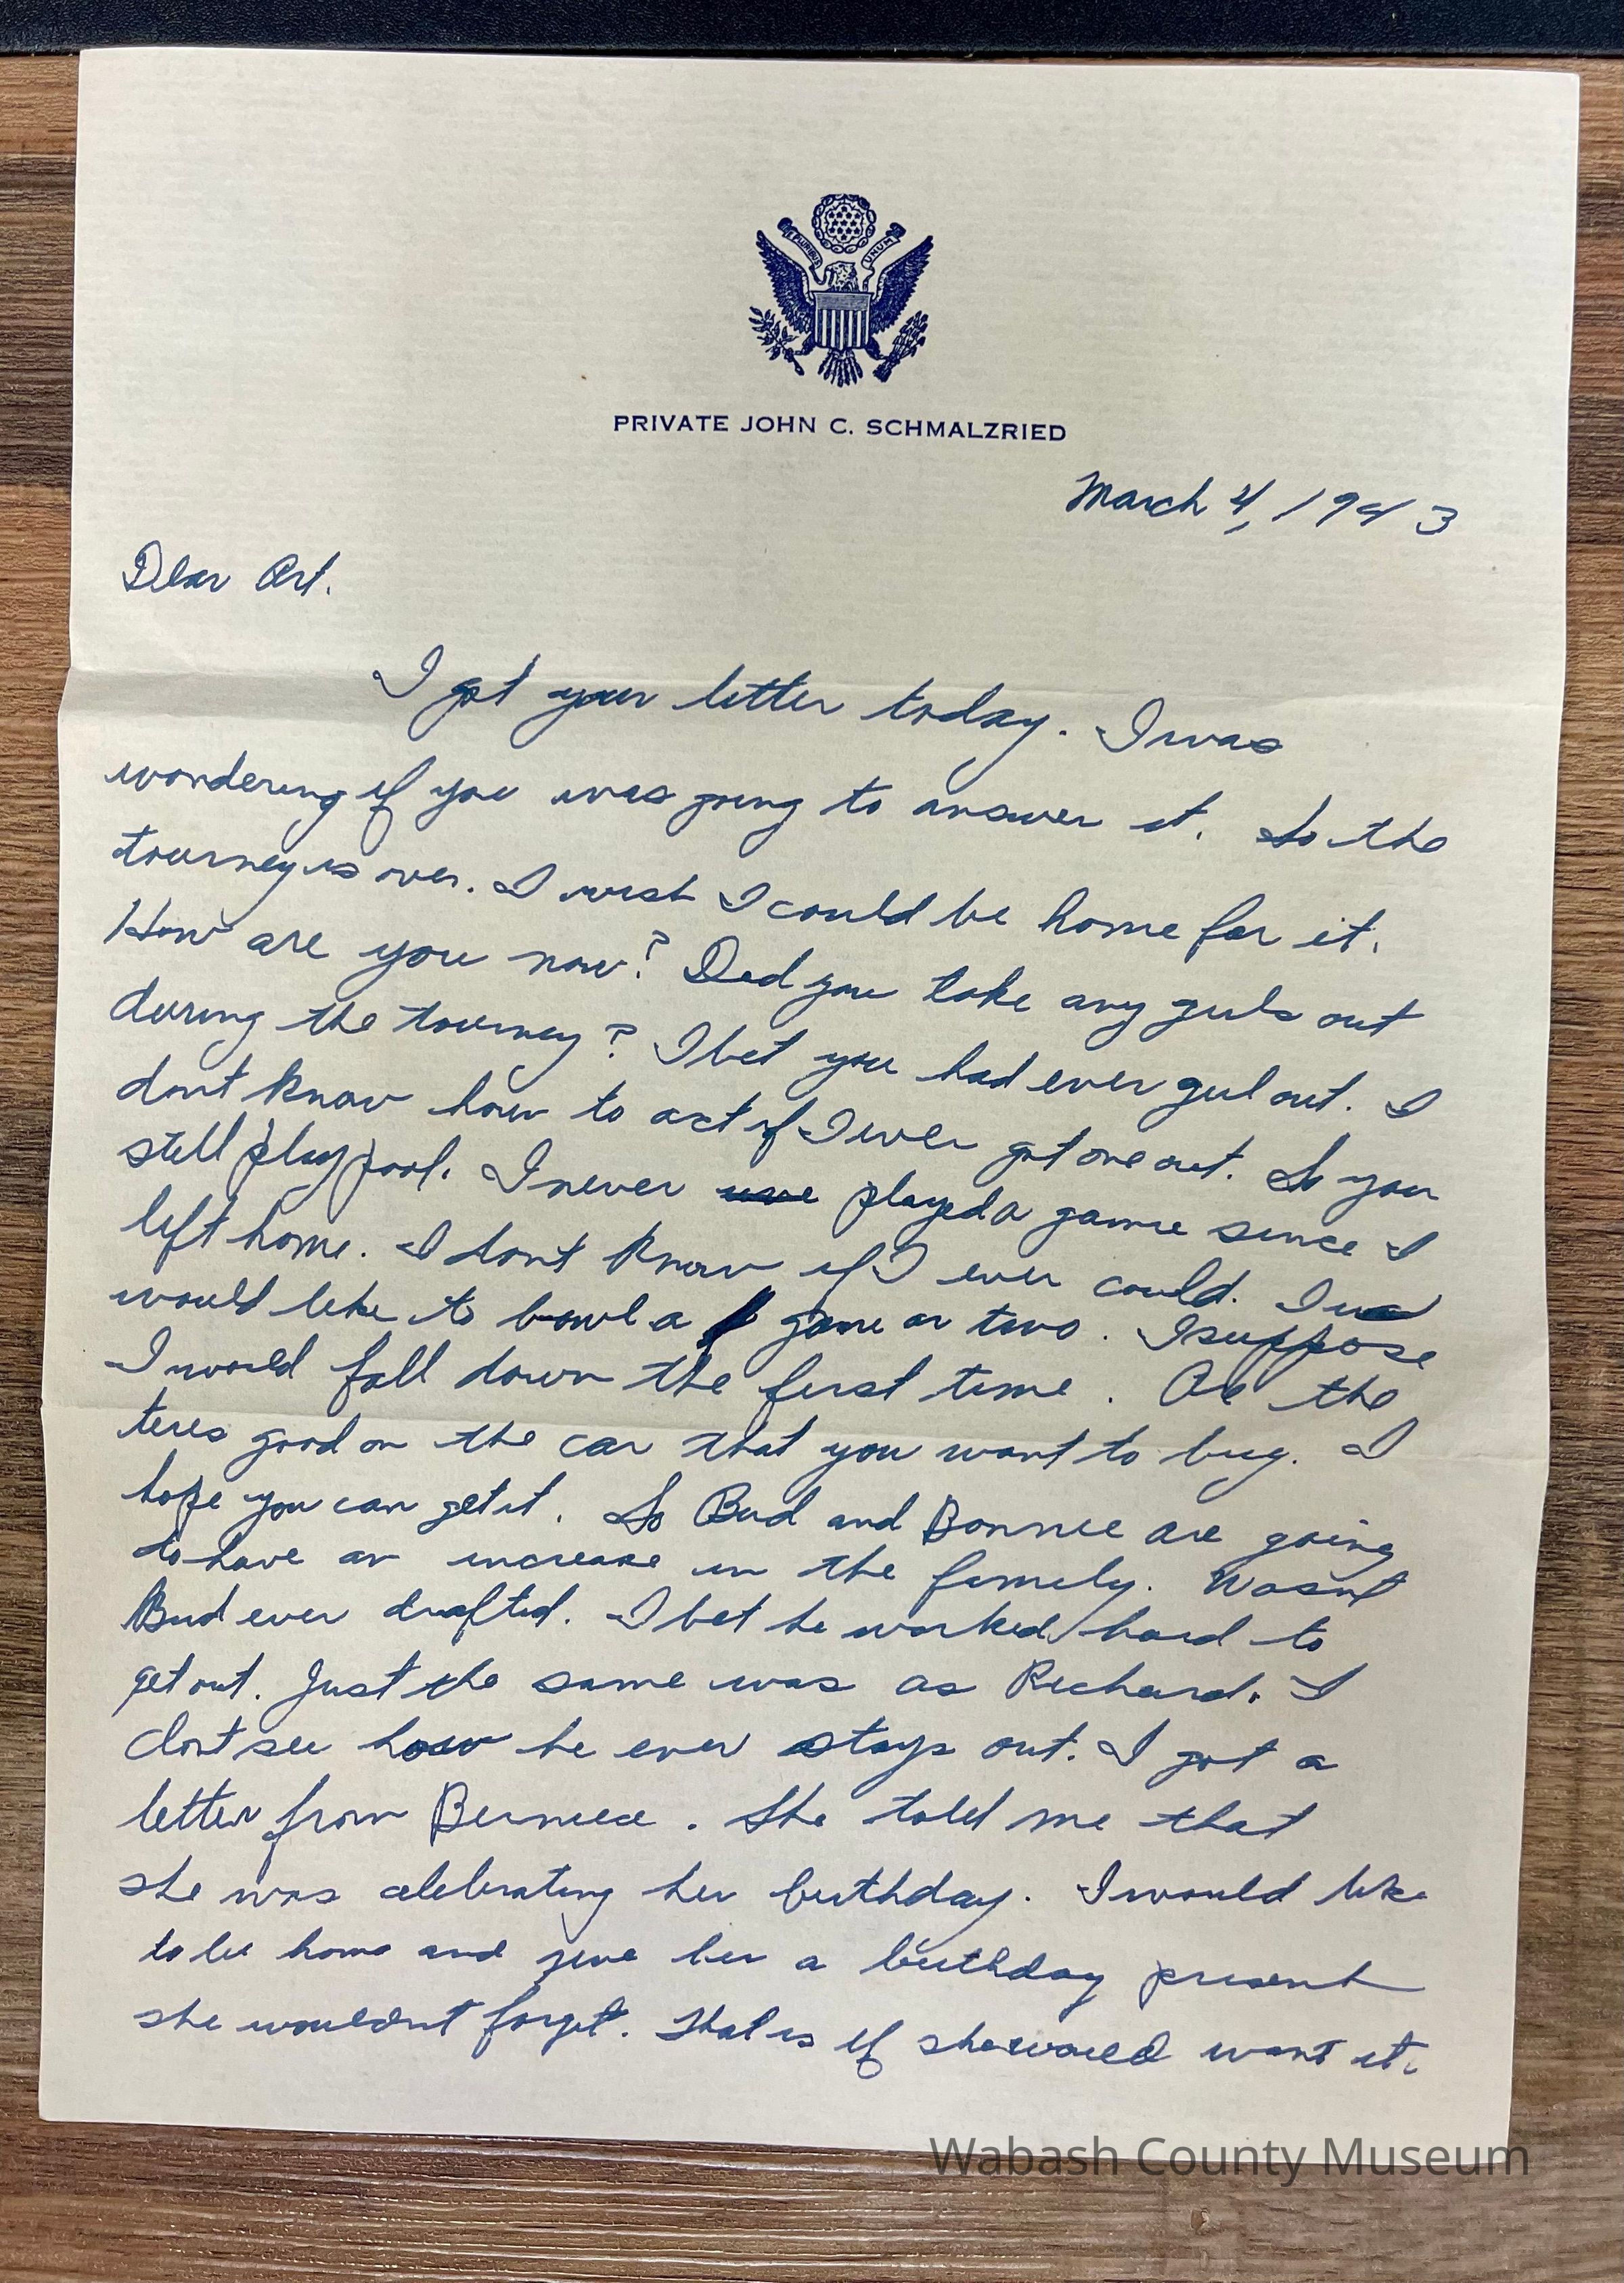 E PLURIBUS UNUM
PRIVATE JOHN C. SCHMALZRIED
March 4, 1943
Dear Art.
I got your letter today. I was
wondering if you was going to answer it. So the
tourney is over. I wish I could be home for it.
How are you now? Did you take any girls out
during the tourney? I bet you had ever girl out. I
dont know how to act if I ever got one out. So you
still play pool. I never played a game since I
left home. I dont know if I ever could. I
would like to bowl a game or two. I suppose
I would fall down the first time. Are the
tires good on the car that you want to buy. I
hope you can get it. So Bud and Bonnie are going
to have an increase in the family. Wasnt
Bud ever drafted. I bet he worked hard to
get out. Just the same was as Richard. I
dont see how he ever stays out. I got a
letter from Berniece. She told me that
she was celebrating her birthday. I would like
to be home and give her a birthday present
she wouldnt forget. That is if she would want it.
Wabash County Museum